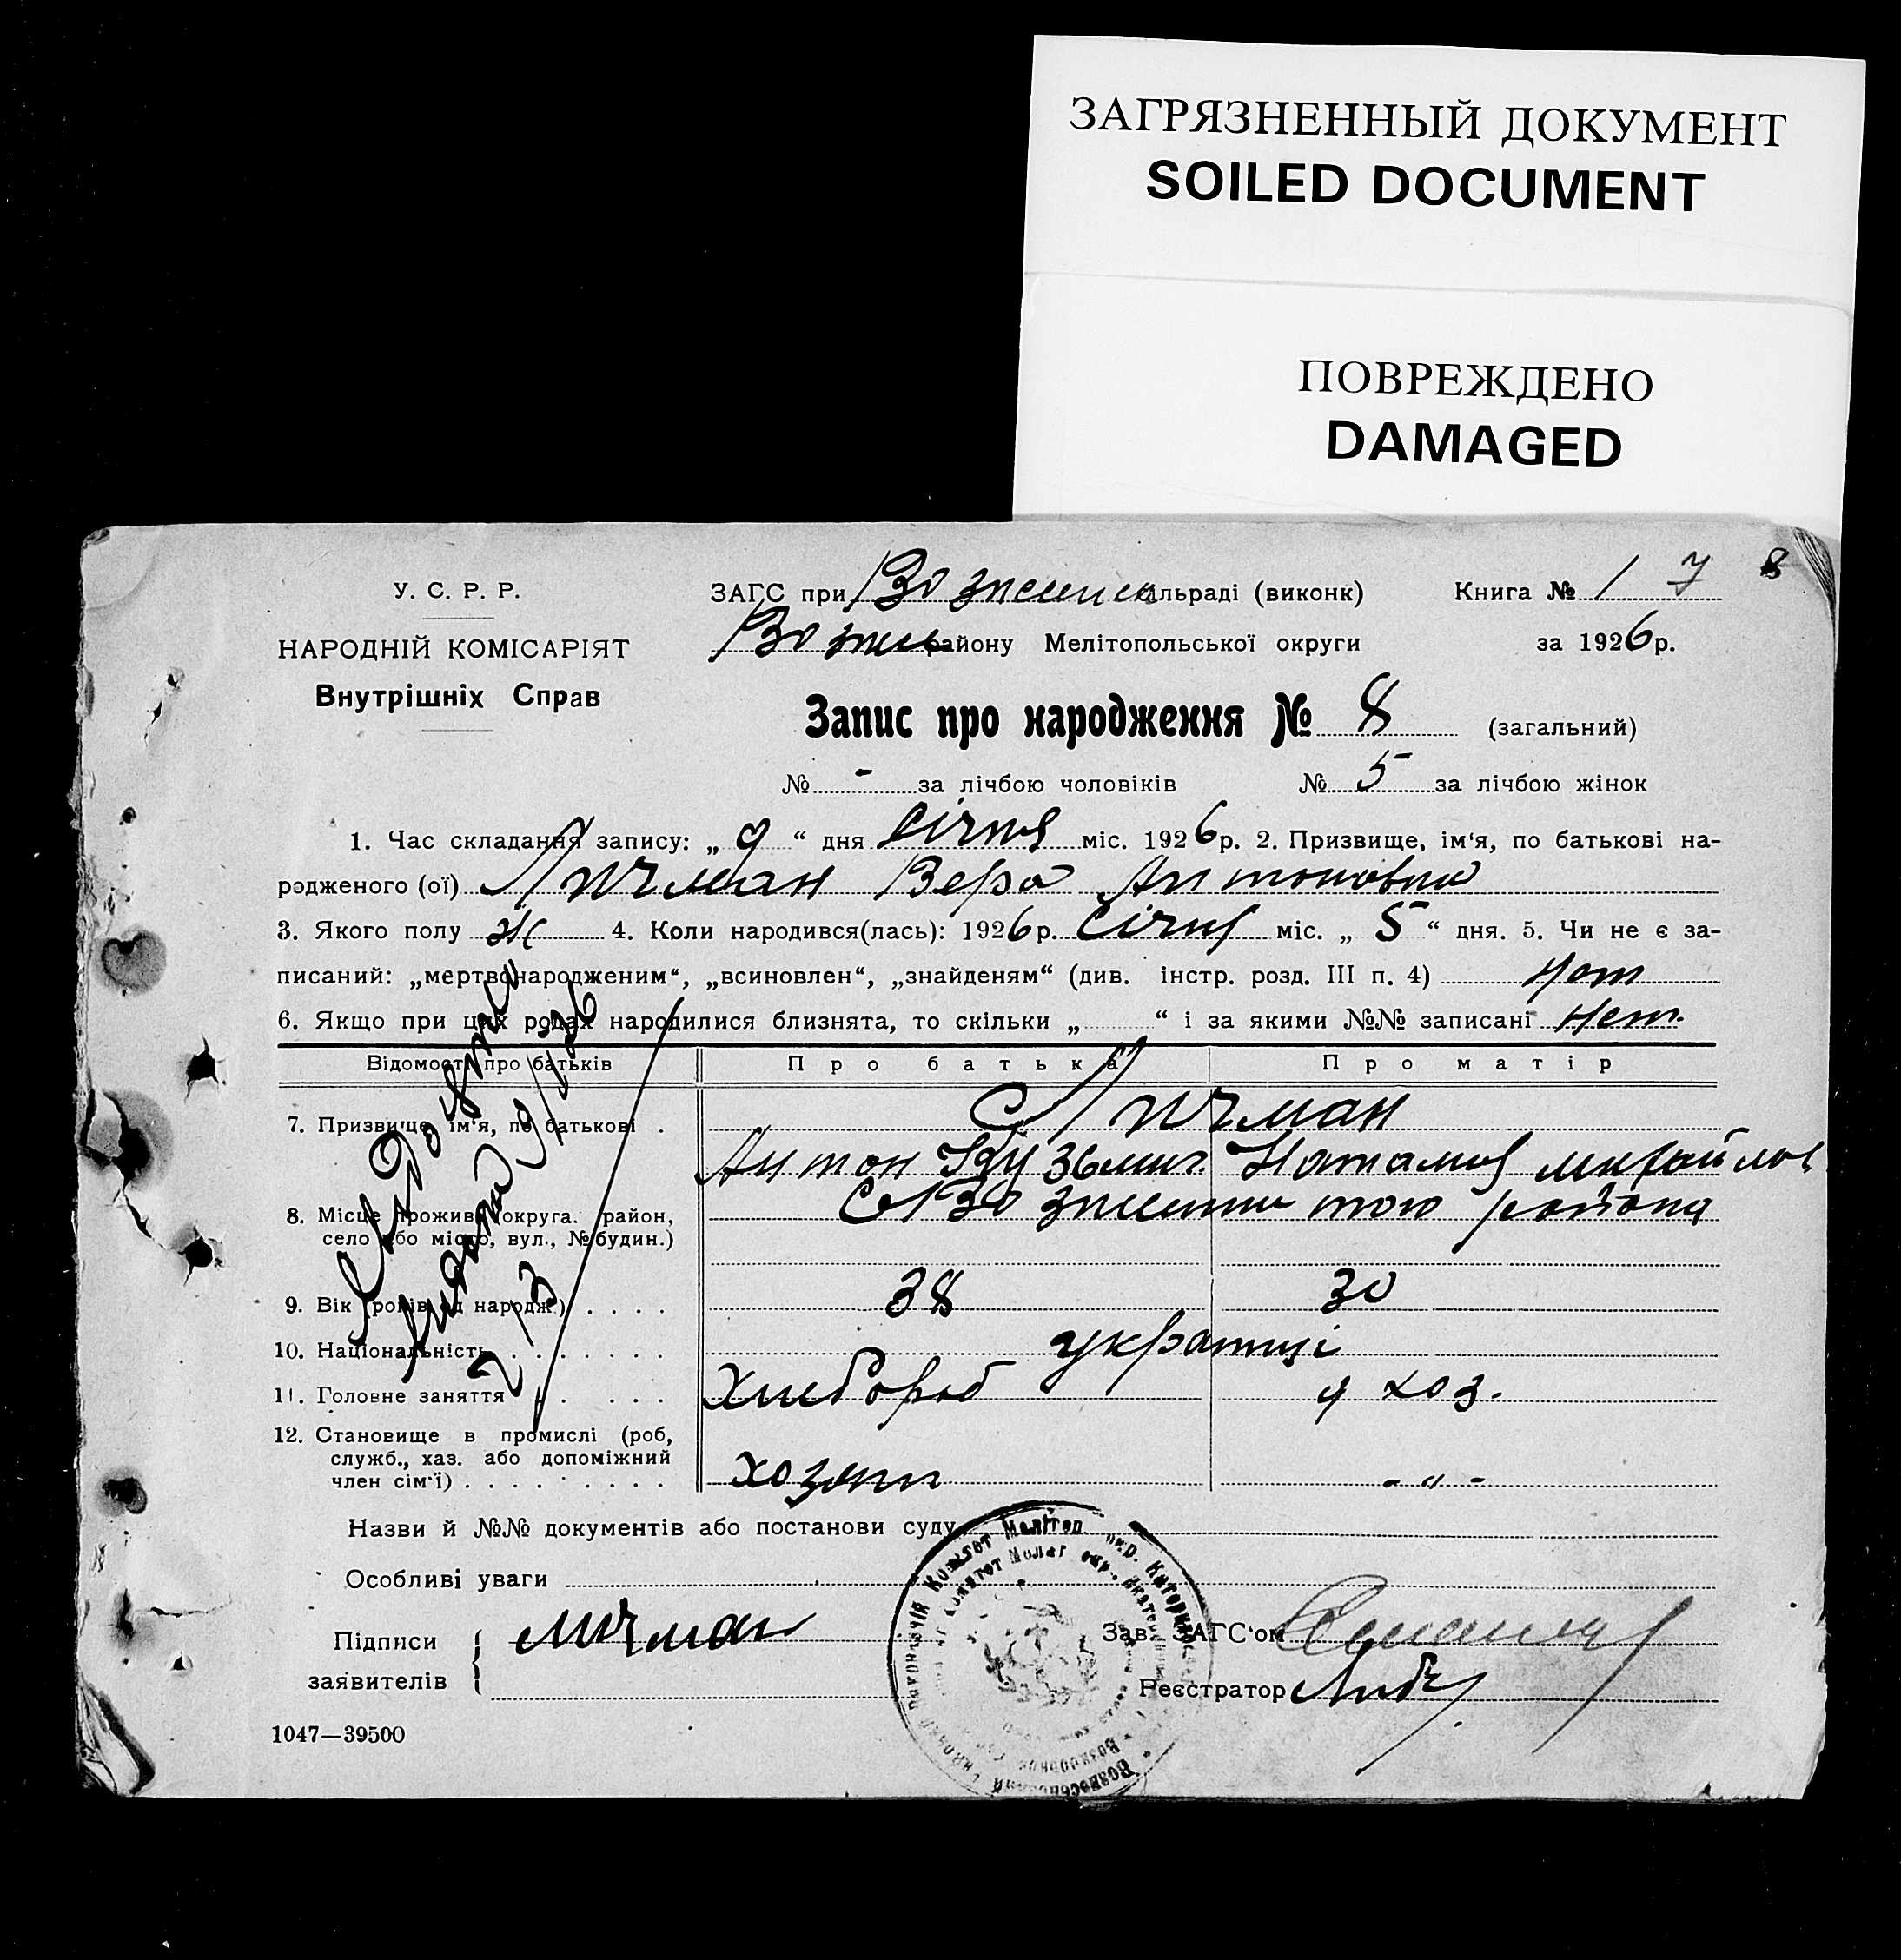 ЗАГРЯЗНЕННЫЙ ДОКУМЕНТ
SOILED DOCUMENT
ПОВРЕЖДЕНО
DAMAGED
У. С. Р. Р.
НАРОДНІЙ КОМІСАРІЯТ
Внутрішніх Справ
ЗАГС при льраді (виконк) Книга № 1 7 8
району Мелітопольської округи за 1926р.
Запис про народження № 8 (загальний)
№ - за лічбою чоловіків № 5 за лічбою жінок
1. Час складання запису: „ 9 “ дня Січня міс. 1926р. 2. Призвище, ім‘я, по батькові на-
родженого (ої) Личман Вера Антоновна
3. Якого полу ж 4. Коли народився(лась): 1926р. Січня міс. „ 5 “ дня. 5. Чи не є за-
писаний: „мертвонародженим“, „всиновлен“, „знайденям“ (див. інстр. розд. III п. 4) Нет
6. Якщо при цих родах народилися близнята, то скільки „ “ і за якими №№ записані Нет.
Відомості про батьків Про батька Про матір
7. Призвище, ім‘я, по батькові . Личман
Антон Кузьмич Наталия Михайлов
8. Місце прожив. (округа. район,
село або місто, вул., № будин.)
тою района
9. Вік (років од народж.) . . . . 38 30
10. Національність . . . . . . . українці
11. Головне заняття . . . . . Хлебороб д хоз.
12. Становище в промислі (роб,
служб., хаз. або допоміжний
член сім‘ї) . . . . . . . . . хозяин - „ -
Назви й №№ документів або постанови суду
Особливі уваги
Підписи Личман Зав. ЗАГС‘ом
заявителів Реєстратор
1047—39500